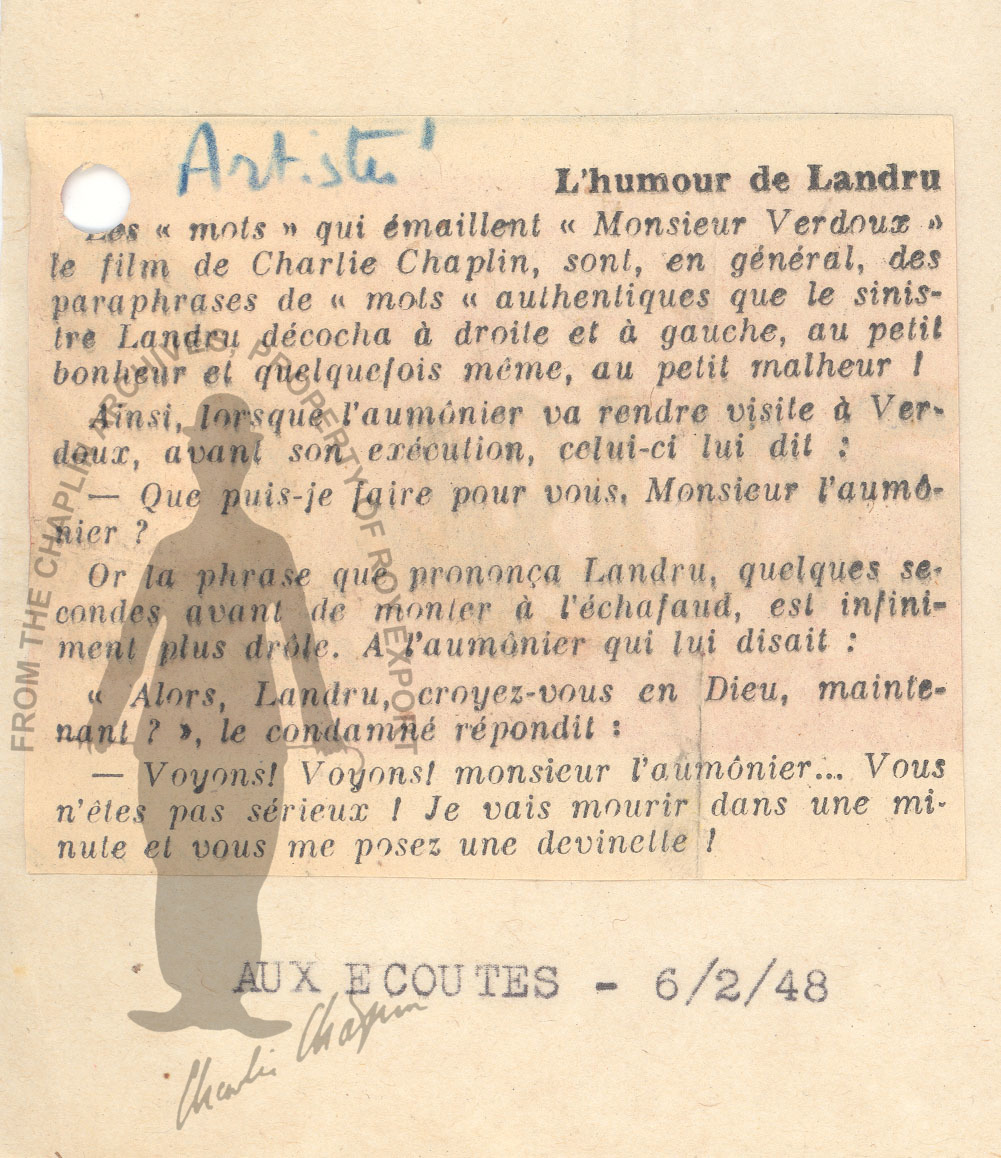 Artiste'
L'humour de Landru
Les « mots » qui émaillent « Monsieur Verdoux »
le film de Charlie Chaplin, sont, en général, des
paraphrases de « mots « authentiques que le sinis-
tre Landru décocha à droite et à gauche, au petit
bonheur et quelquefois même, au petit malheur !
Ainsi, lorsque l'aumônier va rendre visite à Ver-
doux, avant son exécution, celui-ci lui dit :
— Que puis-je faire pour vous, Monsieur l'aumô-
nier ?
Or la phrase que prononça Landru, quelques se-
condes avant de monter à l'échafaud, est infini-
ment plus drôle. A l'aumônier qui lui disait :
« Alors, Landru, croyez-vous en Dieu, mainte-
nant ? », le condamné répondit :
— Voyons! Voyons! monsieur l'aumônier... Vous
n'êtes pas sérieux ! Je vais mourir dans une mi-
nute et vous me posez une devinette !
AUX ECOUTES - 6/2/48
FROM THE CHAPLIN ARCHIVES, PROPERTY OF ROY EXPORT
Charlie Chaplin